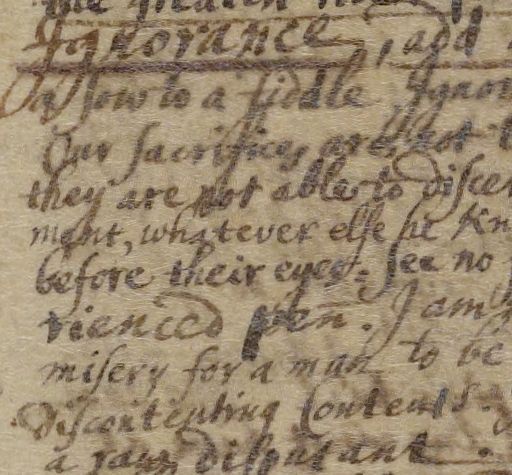 the greater
Ignorance, add
a sow to a fiddle, Ignor
Our sacrifices are not
they are not able to discer
ment, whatever else he kn
before their eyes: see no
rienced pen. I am
misery for a man to be
Discontenting contents.
a raw disputant.